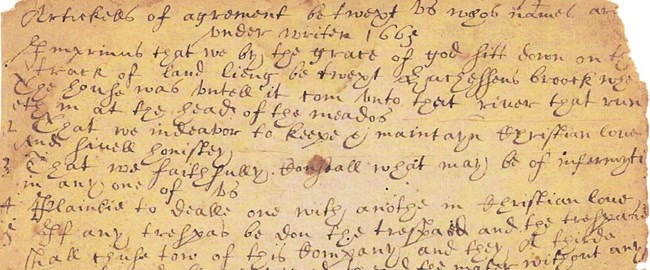 Artickells of agrement betwext us whos names are
under writen 1663
Imprimus that we by the grace of god sitt down on the
track of land lieng betwext Jhacheffens broock whe
The house was untell it com unto that river that run
eth in at the head of the meados
2 That we indeavor to keepe & maintayn Christian love
and sivell honisty
3 That we faithfully Counsall what may be of infermyti
in any one of us
4 Plainlie to dealle one with anothe in Christian love
5 If any trespas be don the trespaed and the trespaser
shall chuse tow of this Company and they A thirde
the mater without any